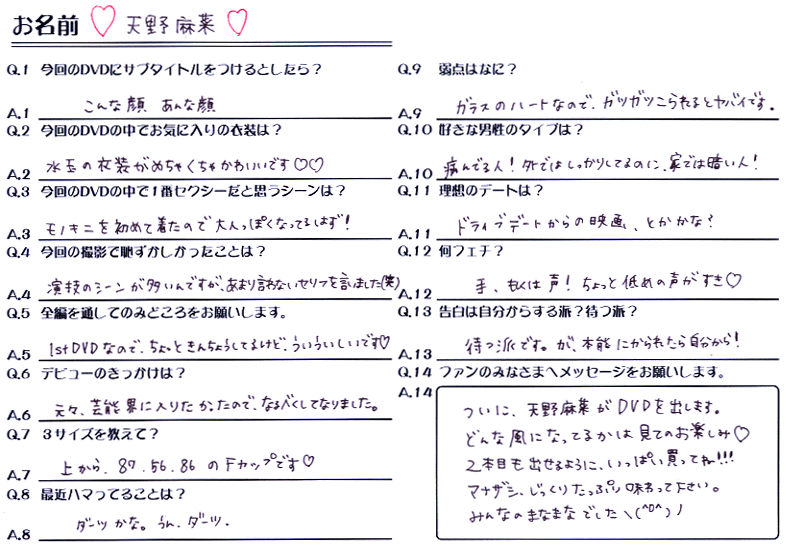 お名前 ♡ 天野麻菜 ♡
Q.1 今回のDVDにサブタイトルをつけるとしたら？
A.1 こんな顔 あんな顔
Q.2 今回のDVDの中でお気に入りの衣装は？
A.2 水玉の衣装がめちゃくちゃかわいいです♡♡
Q.3 今回のDVDの中で1番セクシーだと思うシーンは？
A.3 モノキニを初めて着たので大人っぽくなってるはず!
Q.4 今回の撮影で恥ずかしかったことは？
A.4 演技のシーンが多いんですが、あまり言わないセリフを言いました(笑)
Q.5 全編を通してのみどころをお願いします。
A.5 1stDVDなので、ちょっときんちょうしてるけど、ういういしいです♡
Q.6 デビューのきっかけは？
A.6 元々、芸能界に入りたかったので、なるべくしてなりました。
Q.7 3サイズを教えて？
A.7 上から、87.56.86 のFカップです♡
Q.8 最近ハマってることは？
A.8 ダーツかな。うん、ダーツ.
Q.9 弱点はなに？
A.9 ガラスのハートなので、ガツガツこられるとヤバイです。
Q.10 好きな男性のタイプは？
A.10 病んでる人! 外ではしっかりしてるのに、家では暗い人!
Q.11 理想のデートは？
A.11 ドライブデートからの映画、とかかな?
Q.12 何フェチ？
A.12 手、もしくは声! ちょっと低めの声がすき♡
Q.13 告白は自分からする派？待つ派？
A.13 待つ派です。が、本能にかられたら自分から!
Q.14 ファンのみなさまへメッセージをお願いします。
A.14
ついに、天野麻菜がDVDを出します。
どんな風になってるかは見てのお楽しみ♡
2本目も出せるように、いっぱい買ってね!!!
マナザシ、じっくりたっぷり味わって下さい。
みんなのまなまなでした＼(^O^)ノ